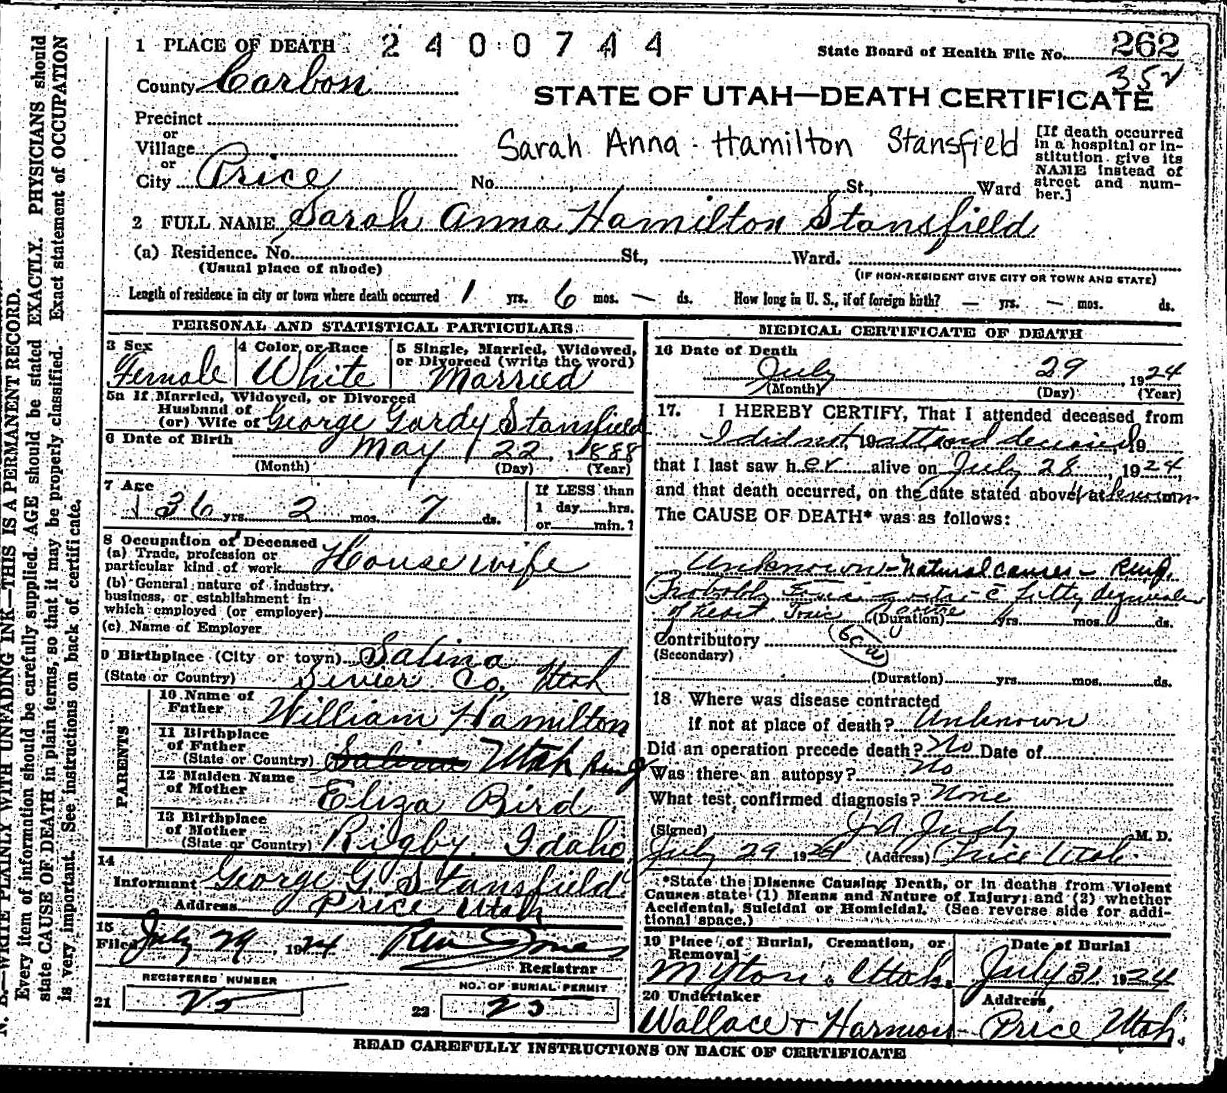 1 PLACE OF DEATH 2400744 State Board of Health File No. 262
352
County Carbon
STATE OF UTAH—DEATH CERTIFICATE
Precinct
or
Village
or
City Price No. St., Ward
Sarah Anna Hamilton Stansfield
[If death occurred
in a hospital or in-
stitution give its
NAME instead of
street and num-
ber.]
2 FULL NAME Sarah Anna Hamilton Stansfield
(a) Residence. No. St., Ward.
(Usual place of abode) (IF NON-RESIDENT GIVE CITY OR TOWN AND STATE)
Length of residence in city or town where death occurred 1 yrs. 6 mos. — ds. How long in U. S., if of foreign birth? — yrs. — mos. ds.
PERSONAL AND STATISTICAL PARTICULARS
3 Sex
Female
4 Color or Race
White
5 Single, Married, Widowed,
or Divorced (write the word)
Married
5a If Married, Widowed, or Divorced
Husband of
(or) Wife of George Gardy Stansfield
6 Date of Birth May 22, 1888
(Month) (Day) (Year)
7 Age
36 yrs. 2 mos. 7 ds.
If LESS than
1 day hrs.
or min.?
8 Occupation of Deceased
(a) Trade, profession or
particular kind of work House wife
(b) General nature of industry,
business, or establishment in
which employed (or employer)
(c) Name of Employer
9 Birthplace (City or town) Salina
(State or Country) Sevier Co. Utah
PARENTS
10 Name of
Father William Hamilton
11 Birthplace
of Father
(State or Country) Salina Utah
12 Maiden Name
of Mother Eliza Bird
13 Birthplace
of Mother
(State or Country) Rigby, Idaho
14
Informant George G. Stansfield
Address Price Utah
15
Filed July 29, 1924
Registrar
REGISTERED NUMBER
21 25
NO. OF BURIAL PERMIT
22 25
MEDICAL CERTIFICATE OF DEATH
16 Date of Death
July 29, 1924
(Month) (Day) (Year)
17. I HEREBY CERTIFY, That I attended deceased from
I did not, 19 attend deceased, 19
that I last saw her alive on July 28, 1924,
and that death occurred, on the date stated above, at unknown
The CAUSE OF DEATH* was as follows:
Unknown - Natural causes -
Probably Toxic fatty
of heart. Toxic (Duration) yrs. mos. ds.
Contributory
(Secondary)
(Duration) yrs. mos. ds.
18 Where was disease contracted
if not at place of death? Unknown
Did an operation precede death? No Date of
Was there an autopsy? No
What test confirmed diagnosis? None
(Signed) J A Judy M. D.
July 29 1924 (Address) Price Utah.
*State the Disease Causing Death, or in deaths from Violent
Causes state (1) Means and Nature of Injury; and (2) whether
Accidental, Suicidal or Homicidal. (See reverse side for addi-
tional space.)
19 Place of Burial, Cremation, or
Removal
Myton, Utah.
Date of Burial
July 31 1924
20 Undertaker
Wallace & Harmon
Address
Price Utah.
READ CAREFULLY INSTRUCTIONS ON BACK OF CERTIFICATE
N. B.—WRITE PLAINLY WITH UNFADING INK—THIS IS A PERMANENT RECORD.
Every item of information should be carefully supplied. AGE should be stated EXACTLY. PHYSICIANS should
state CAUSE OF DEATH in plain terms, so that it may be properly classified. Exact statement of OCCUPATION
is very important. See instructions on back of certificate.